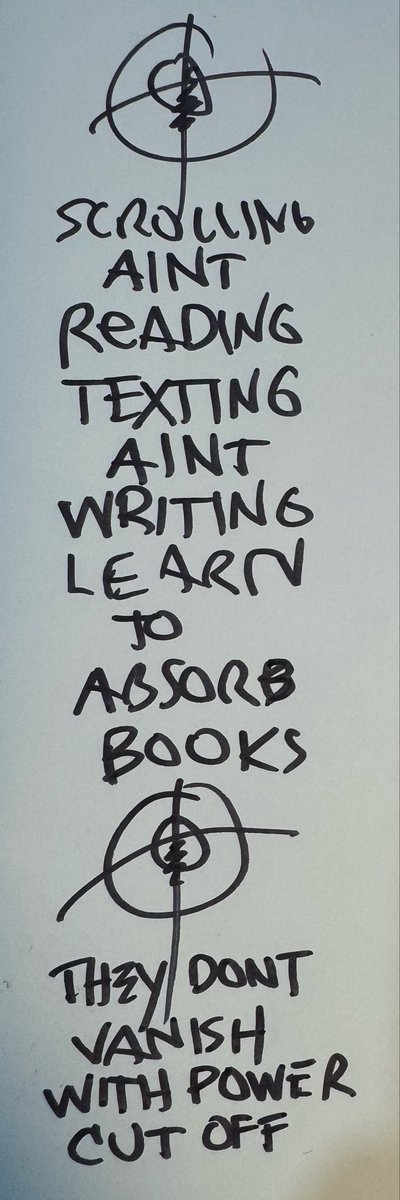 SCROLLING
AINT
READING
TEXTING
AINT
WRITING
LEARN
TO
ABSORB
BOOKS
THEY DONT
VANISH
WITH POWER
CUT OFF